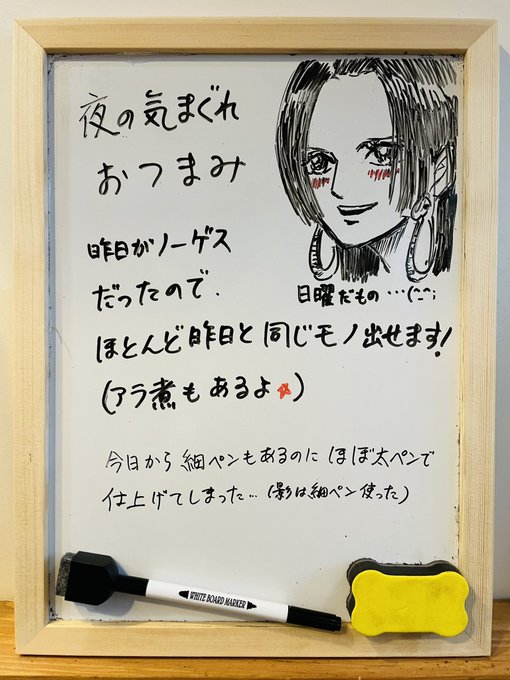 夜の気まぐれ
おつまみ
昨日がノーゲス
だったので、
ほとんど昨日と同じモノ出せます!
(アラ煮もあるよ☆)
日曜だもの…(^_^;
今日から細ペンもあるのにほぼ太ペンで
仕上げてしまった…(影は細ペン使った)
WHITE BOARD MARKER